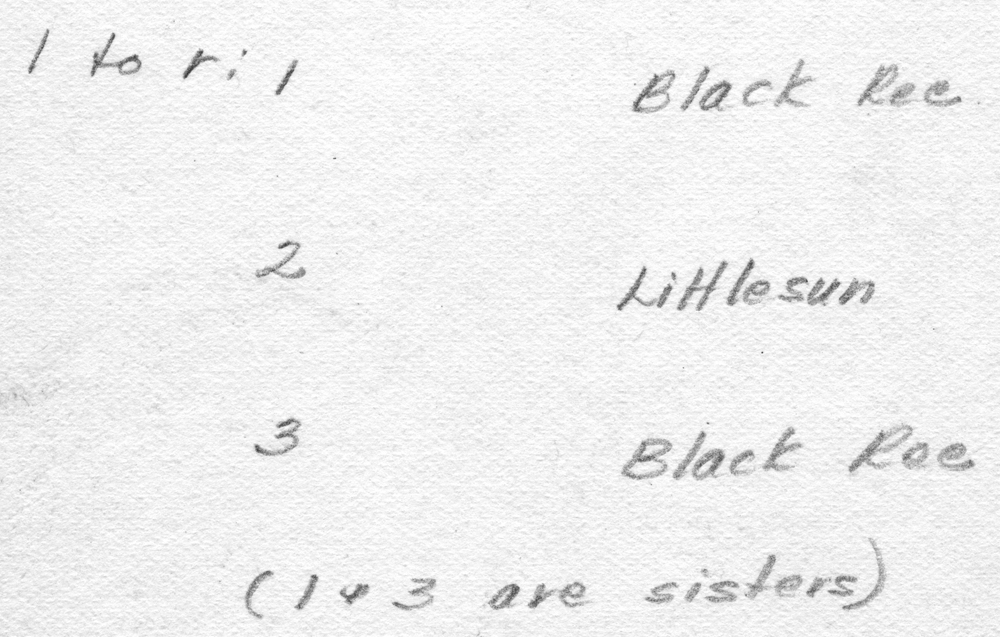 l to r: 1 Black Ree
2 Littlesun
3 Black Ree
(1 & 3 are sisters)